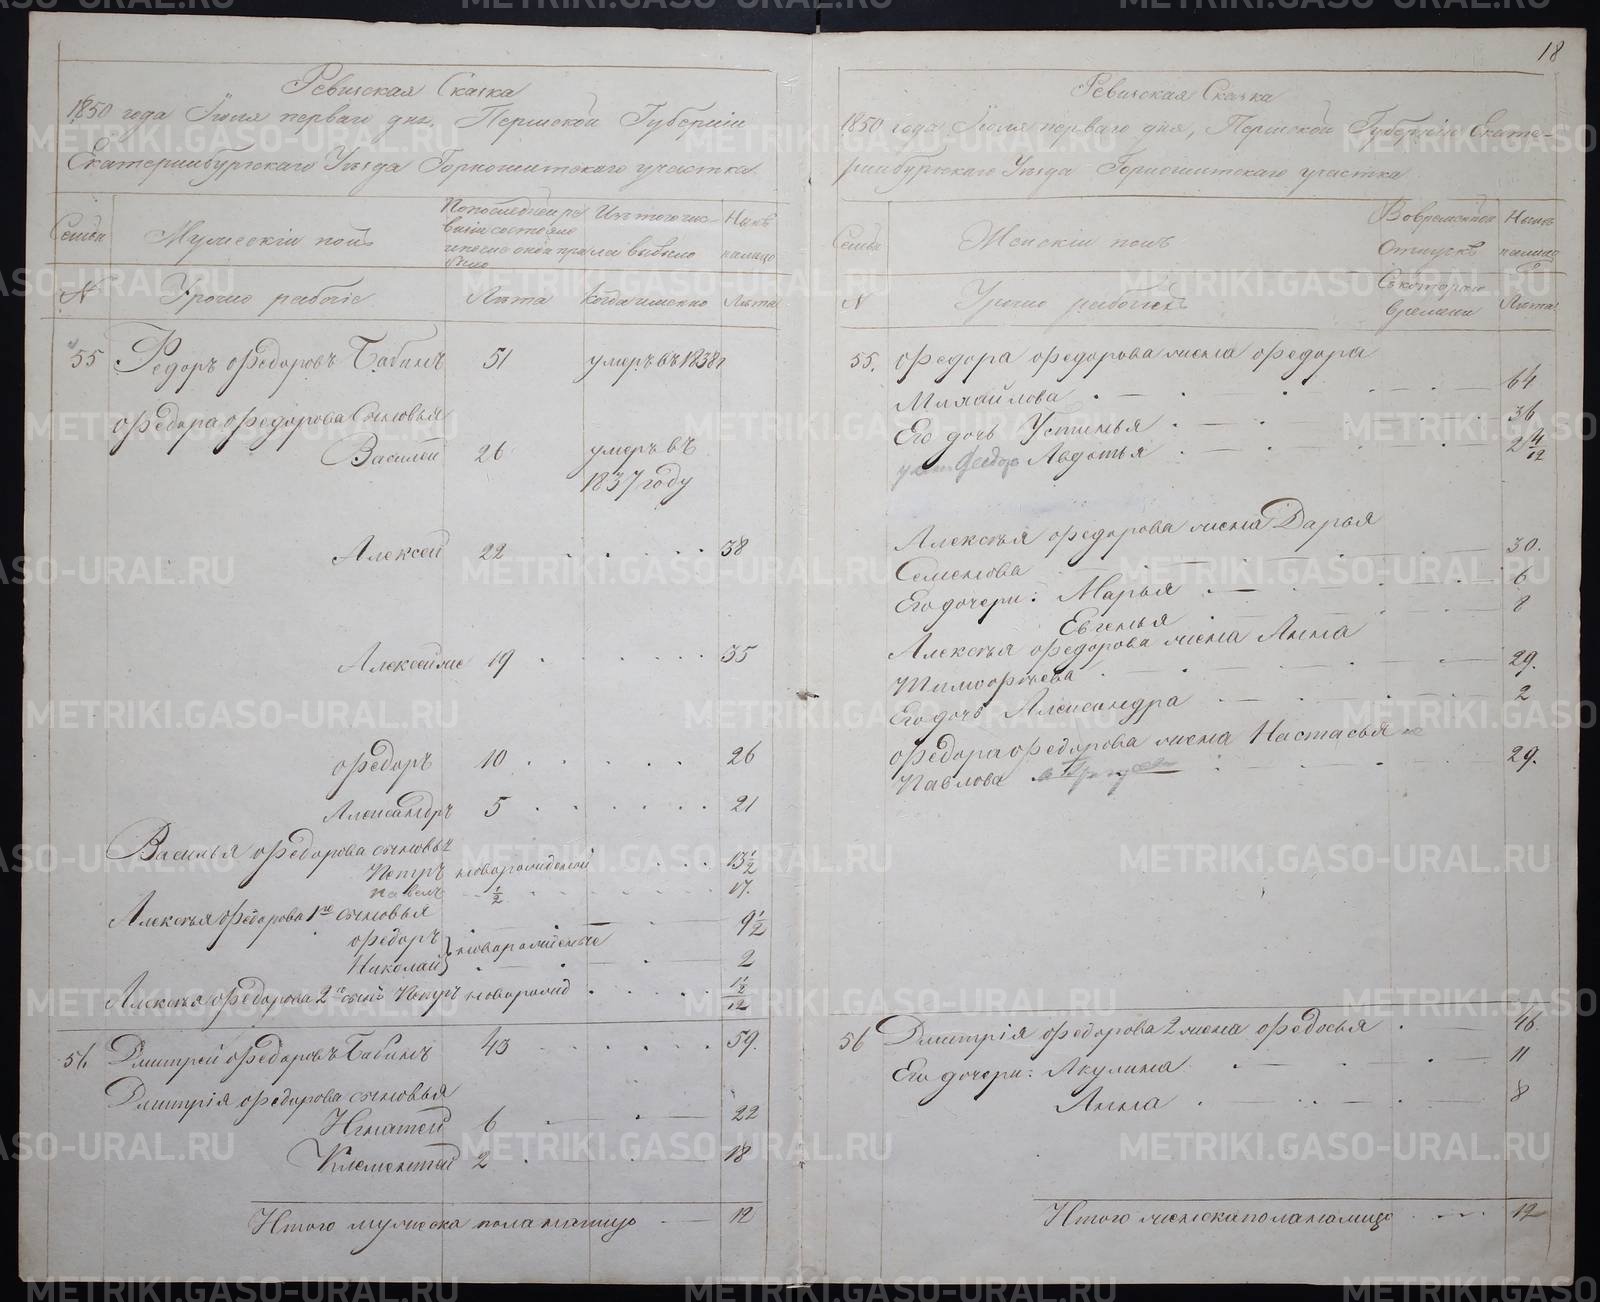 18
Ревизская Сказка
1850 года Іюля перваго дня, Пермской Губерніи
Екатеринбургскаго Уезда Горнощитскаго участка
Семьи
Мужескій полъ
По последней ревизіи состояло
Изъ того числа выбыло
Ныне на лицо
№
Урочно рабочіе
Лета
когда именно
Лета
55 Федоръ Федоровъ Бабинъ 51 умеръ въ 1838 г
Федора Федорова Сыновья
Василей 26 умеръ въ
1837 году
Алексей 22 38
Алексей же 19 35
Федоръ 10 26
Александръ 5 21
Василья Федорова сыновья
Петръ новорожденной 13 1/2
Павелъ 1/2 17.
Алексея Федорова 1го сыновья
Федоръ новорожденные 9 1/2
Николай 2
Алексея Федорова 2го сынъ Петръ новорожд
56. Дмитрей Федоровъ Бабинъ 43 59.
Дмитрія Федорова сыновья
Игнатей 6 22
Клементей 2 18
Итого мужеска пола налицо 12
Ревизская Сказка
1850 года Іюля перваго дня, Пермской Губерніи Екате-
ринбургскаго Уезда Горнощитскаго участка
Семьи
Женскій полъ
Во временной отлучке
Ныне налицо
№
Урочно рабочихъ
Съ котораго времени
Лета
55. Федора Федорова жена Федора
Михайлова 64
Его дочь Устинья 36
Авдотья 2 4/12
Алексея Федорова жена Дарья
Семенова 30.
Его дочери: Марья 6
Евгенья
Алексея Федорова жена Анна
Тимофеева 29.
Его дочь Александра 2
Федора Федорова жена Настасья
Павлова 29.
56 Дмитрія Федорова 2 жена Федосья 46.
Его дочери: Акулина 11
Анна 8
Итого женска пола налицо 12
METRIKI.GASO-URAL.RU